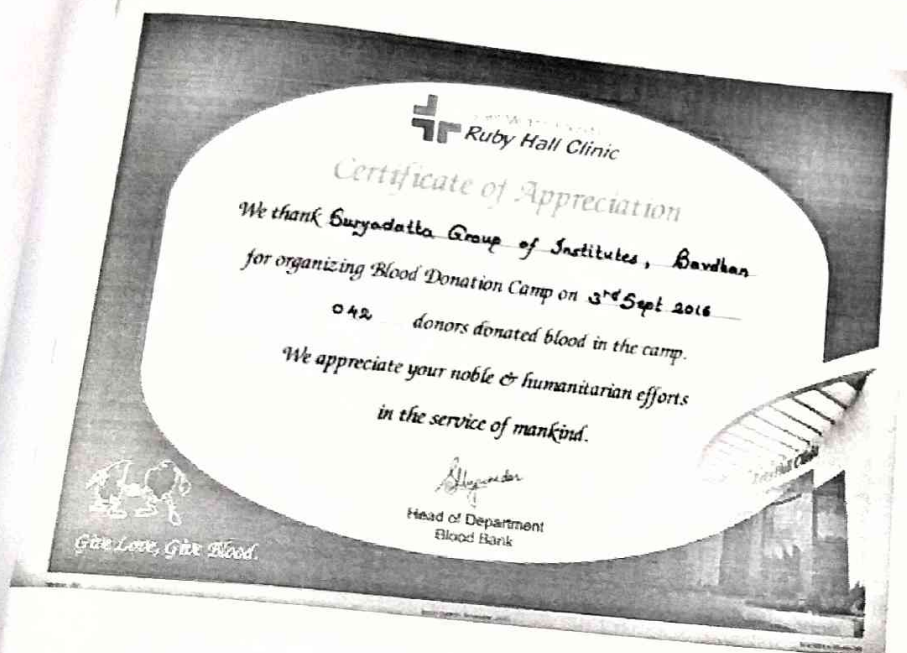 Ruby Hall Clinic
Certificate of Appreciation
We thank Suryadatta Group of Institutes, Bavdhan
for organizing Blood Donation Camp on 3rd Sept 2016
042 donors donated blood in the camp.
We appreciate your noble & humanitarian efforts
in the service of mankind.
Head of Department
Blood Bank
Give Love, Give Blood.
Ruby Hall Clinic